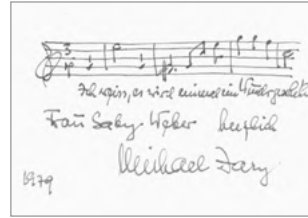 Ich weiss, es wird einmal ein Wunder geschehn
Frau Gaby Weber herzlich
Michael Jary
1979